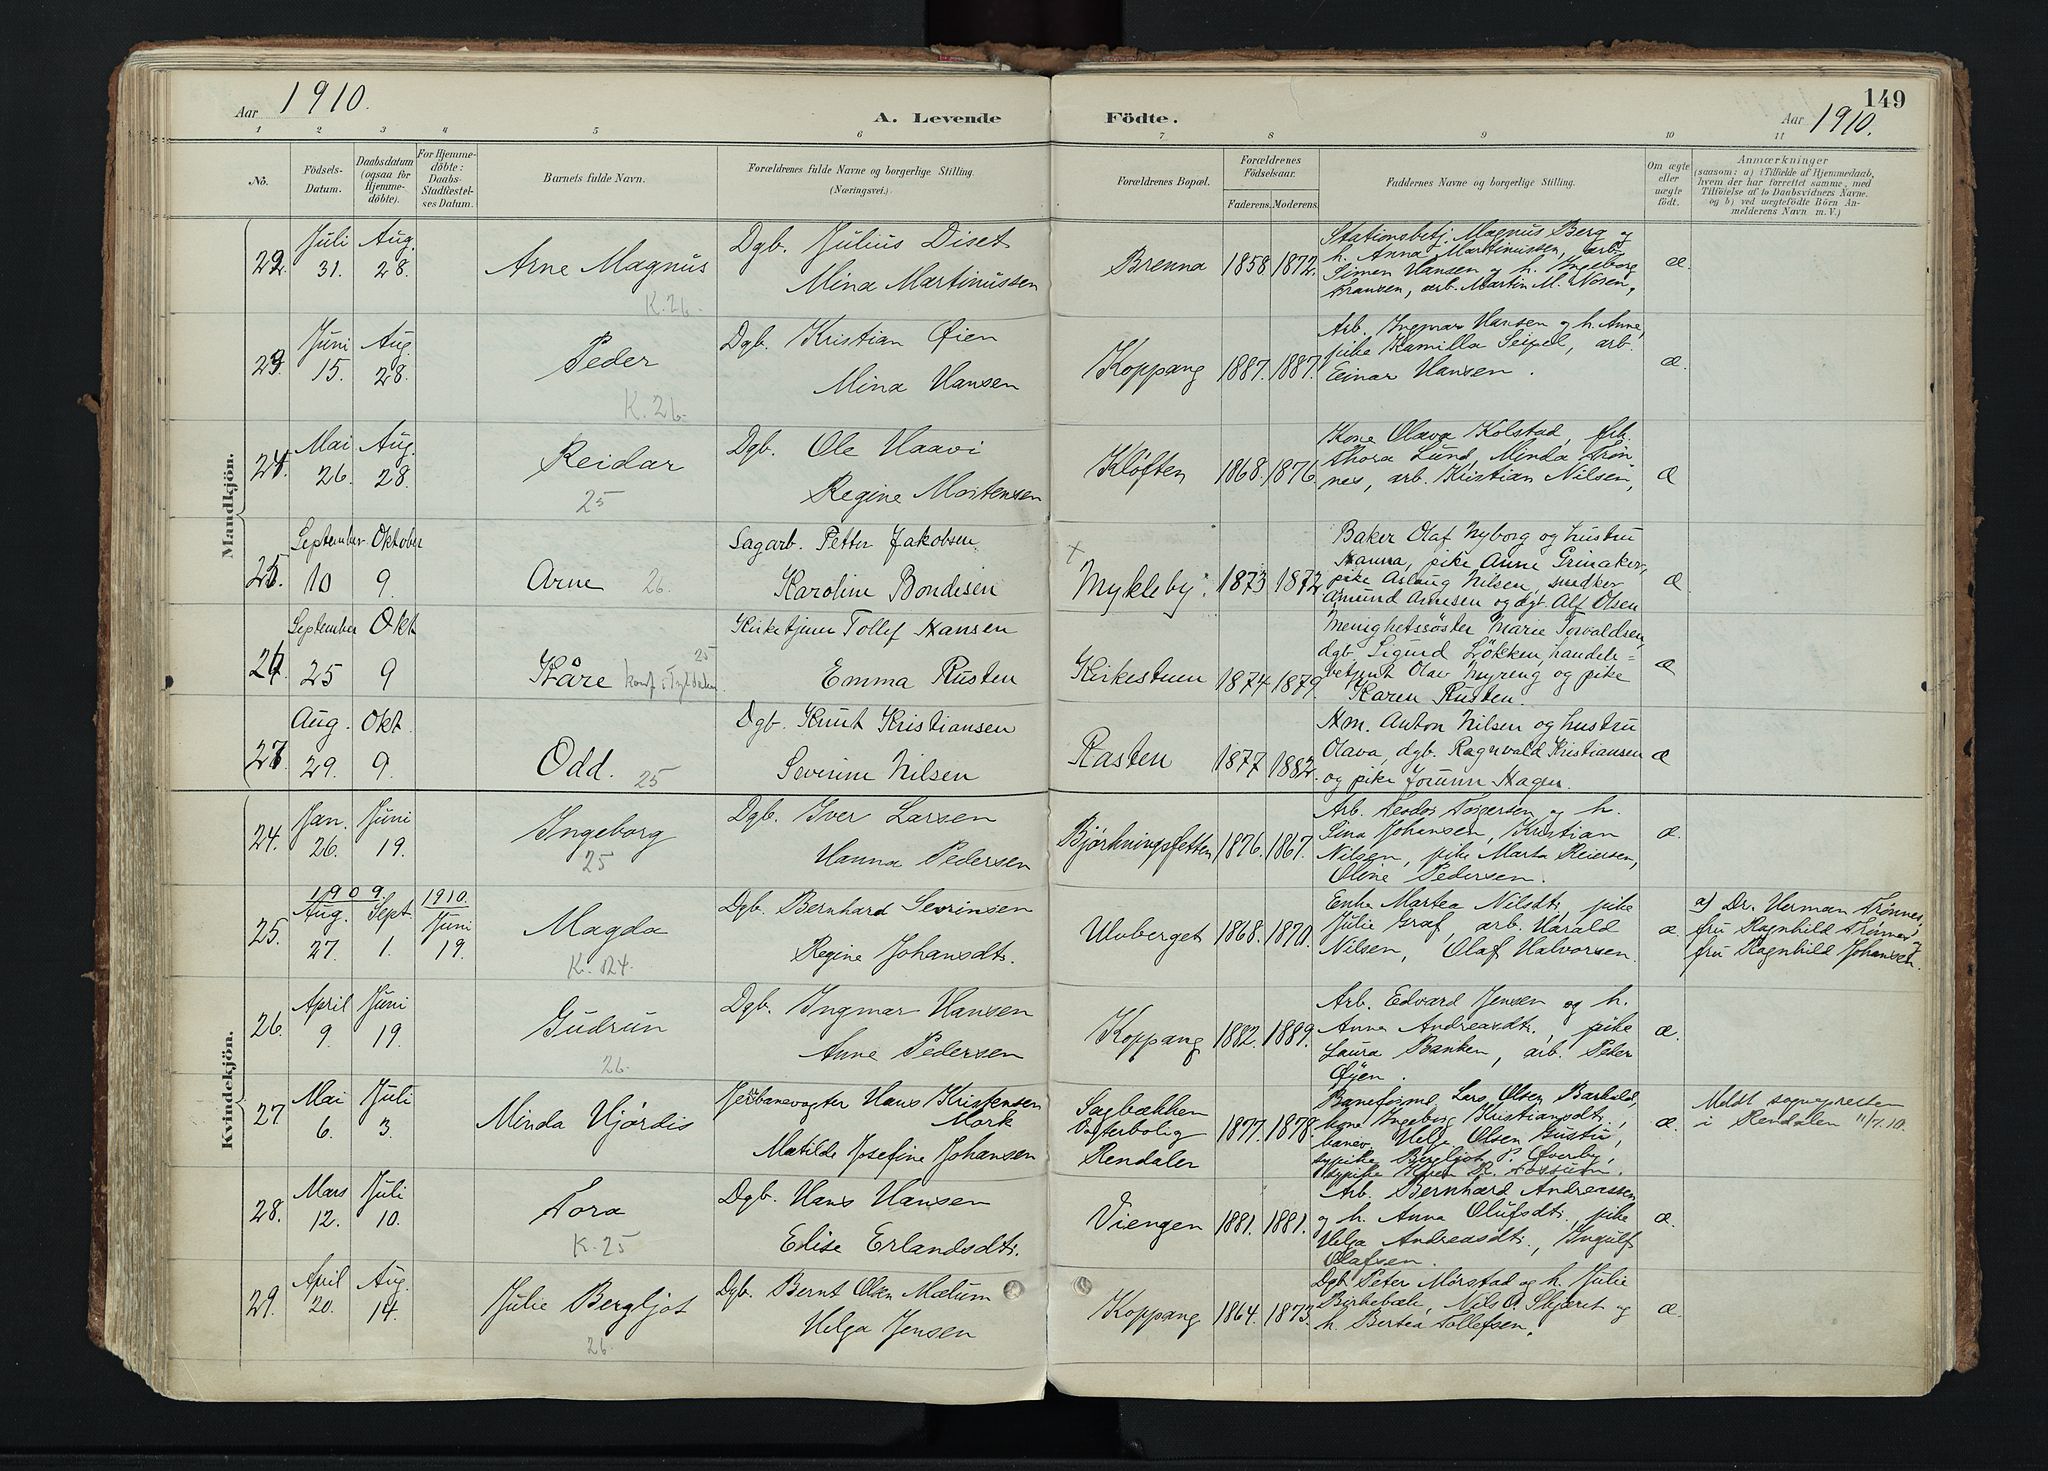 Aar 1910.
A. Levende Födte.
149
Aar 1910.
1 2 3 4 5 6 7 8 9 10 11
No.
Födsels-Datum.
Daabsdatum (ogsaa for Hjemmedöbte).
For Hjemmedöbte: Daabs-Stadfæstelses Datum.
Barnets fulde Navn.
Forældrenes fulde Navne og borgerlige Stilling. (Næringsvei.)
Forældrenes Bopæl.
Forældrenes Fødselsaar.
Faderens. Moderens.
Faddernes Navne og borgerlige Stilling.
Om ægte eller uægte födt.
Anmærkninger
(saasom: a) i Tilfælde af Hjemmedaab, hvem der har forrettet samme, med Tilföielse af to Daabsvidners Navne. og b) ved uægtefödte Börn Anmelderens Navn m. V.)
Mandkjön.
22. Juli 31. Aug. 28. Arne Magnus K. 26.
Dgb. Julius Diset
Mina Martinussen
Brenna 1858 1872.
Stationsbetj. Magnus Berg og
h. Anna Martinussen, arb.
Simen Hansen og h. Ingeborg
Fransen, arb. Martin M. Noren.
æ.
23. Juni 15. Aug. 28. Peder K. 26.
Dgb. Kristian Øien
Mina Hansen
Koppang 1887. 1887.
Arb. Ingmar Hansen og h. Anne,
pike Kamilla Seipel, arb.
Einar Hansen.
æ.
24. Mai 26. Aug. 28. Reidar 25
Dgb. Ole Haavi
Regine Mortensen
Kløften 1868. 1876.
Kone Olava Kolstad, frk.
Thora Lund, Minda Trøn
nes, arb. Kristian Nilsen,
æ
25. September 10 Oktober 9. Arne 26.
Sagarb. Petter Jakobsen
Karoline Bondesen
x Mykleby. 1873 1872
Baker Olaf Nyborg og hustru
Hanna, pike Anne Grinaker,
pike Aslaug Nilsen, snedker
Amund Arnesen og dgt. Alf Olsen
æ
26. September 25 Okt 9 Kåre 25
Kirketjener Tollef Hansen
Emma Rusten
Kirkestuen 1874 1879.
Menighetssøster Marie Torvaldsen,
dgb. Sigurd Løkken, handels=
betjent Olav Myreng og pike
Karen Rusten.
æ
27. Aug. 29. Okt. 9. Odd. 25
Dgb. Knut Kristiansen
Severine Nilsen
Rasten 1877 1882.
Hm. Anton Nilsen og hustru
Olava, dgb. Ragnvald Kristiansen
og pike Jorunn Hagen.
æ
Kvindekjön.
24. Jan. 26. Juni 19. Ingeborg 25
Dgb. Iver Larsen
Hanna Pedersen
Bjørkningsfetten 1876. 1867.
Arb. Teodor Torgersen og h.
Lina Johansen, Kristian
Nilsen, pike Marta Reiersen,
Oline Pedersen.
æ.
25. 1909 Aug. 27. Sept. 1. 1910. Juni 19. Magda K. 24.
Dgb. Bernhard Sevrinsen
Regine Johansdtr.
Ulvberget 1868. 1870.
Enke Martea Nilsdtr, pike
Julie Graf, arb. Harald
Nilsen, Olaf Halvorsen.
æ.
a) Dr. Herman Trønnes,
fru Ragnhild Trønnes og
fru Ragnhild Johansen.
26. April 9. Juni 19. Gudrun 26.
Dgb. Ingmar Hansen
Anne Pedersen
Koppang 1882. 1889.
Arb. Edvard Jensen og h.
Anna Andreasdtr., pike
Laura Banken, arb. Peter
Øien.
æ.
27 Mai 6. Juli 3. Minda Hjørdis
Jernbanevogter Hans Kristensen
Mork
Matilde Josefine Johansen
Sagbækken
Vogterbolig
Rendalen
1877. 1878.
Baneformd. Lars Olsen Barkald,
kone Ingeborg Kristiansdtr,
banev. Helge Olsen
sypike Bergljot P. Øverby,
sypike Karen R. Fossum.
æ.
Meldt sognepresten
i Rendalen 11/7.10.
28. Mars 12. Juli 10. Tora K. 25
Dgb. Hans Hansen
Elise Erlandsdtr.
Viengen 1881. 1881.
Arb. Bernhard Andreassen
og h. Anna Olufsdtr., pike
Helga Andreasdtr., Ingulf
Olafsen.
æ.
29. April 20. Aug. 14. Julie Bergljot 26.
Dgb. Bernt Olsen Mælum
Helga Jensen
Koppang 1864. 1873.
Dgb. Peter Mørstad og h. Julie
Birkebæk, Nils O. Skjæret og
h. Bertea Tollefsen.
æ.